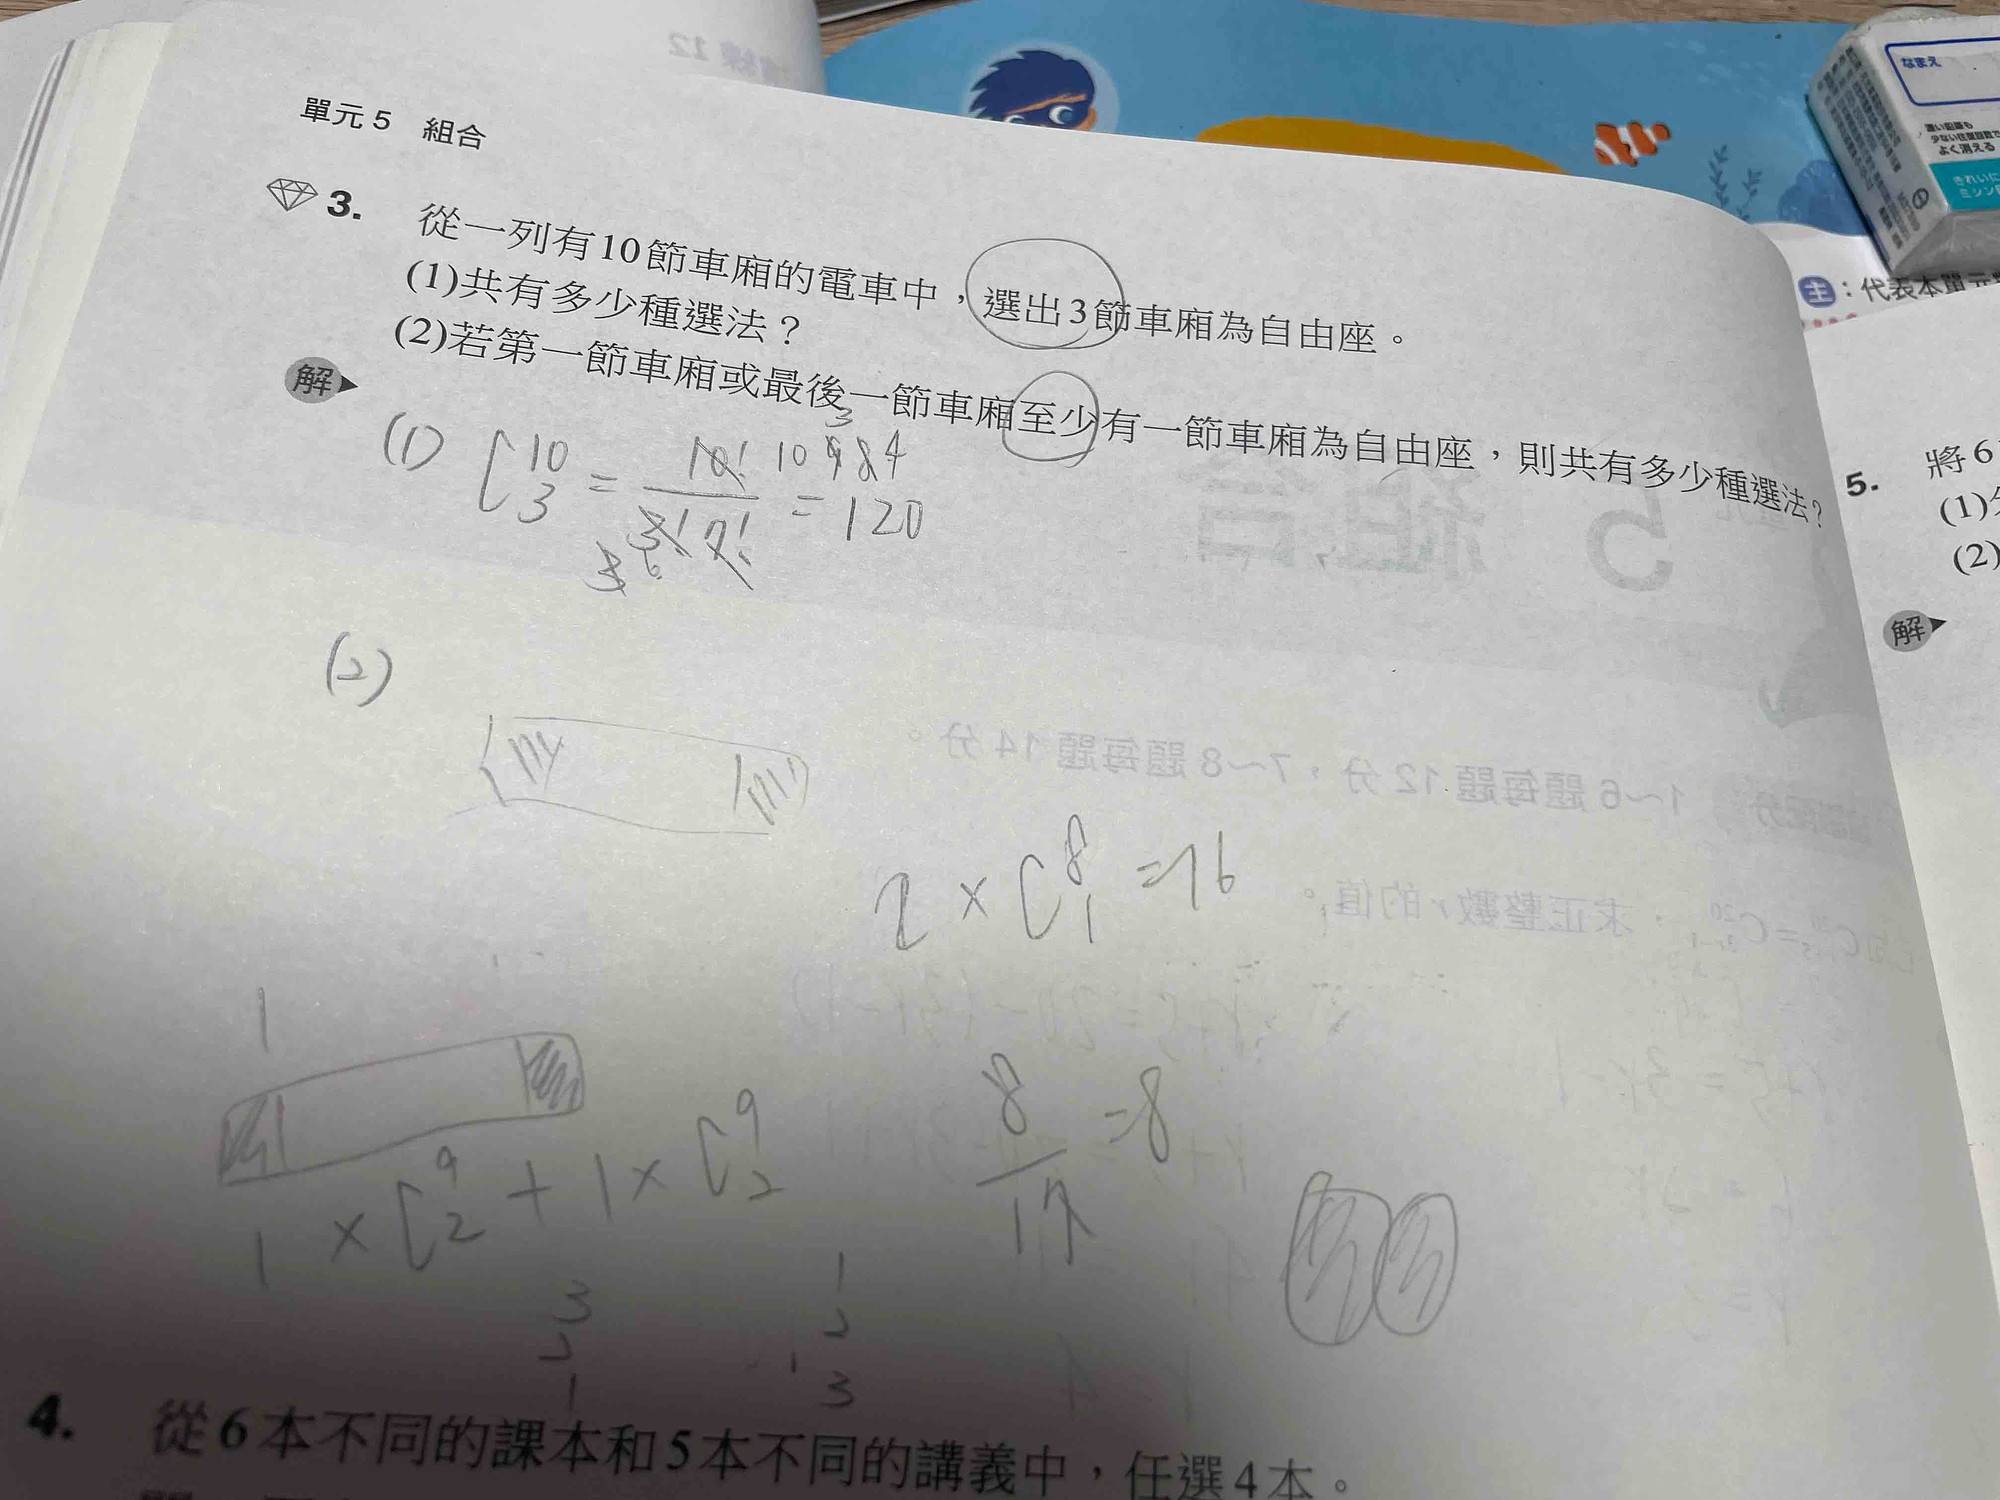 單元 5 組合
3. 從一列有10節車廂的電車中，選出3節車廂為自由座。
(1)共有多少種選法？
(2)若第一節車廂或最後一節車廂至少有一節車廂為自由座，則共有多少種選法？
解
(1) C 10 3 = 10! / 3! 7! = 120
10 9 8 4
3
(2)
2 × C 8 1 = 16
1
1 × C 9 2 + 1 × C 9 2
8 = 8
3
2
1
1
2
3
4. 從6本不同的課本和5本不同的講義中，任選4本。
なまえ
よく消える
主：代表本單元
5. 將6
(1)
(2)
解